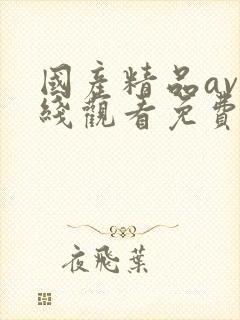 國産精品av
綫觀看免費
夜飛葉